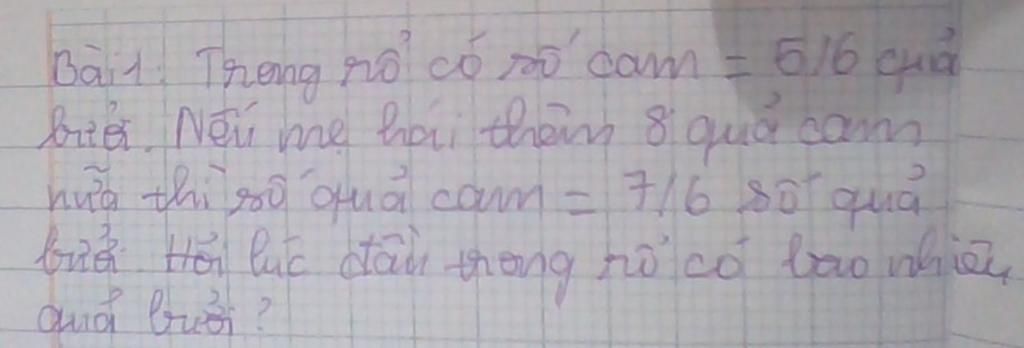 Bài 1: Trong rổ có số cam = 5/6 quả
bưởi. Nếu mẹ hái thêm 8 quả cam
nữa thì số quả cam = 7/6 số quả
bưởi Hỏi lúc đầu trong rổ có bao nhiêu
quả bưởi?